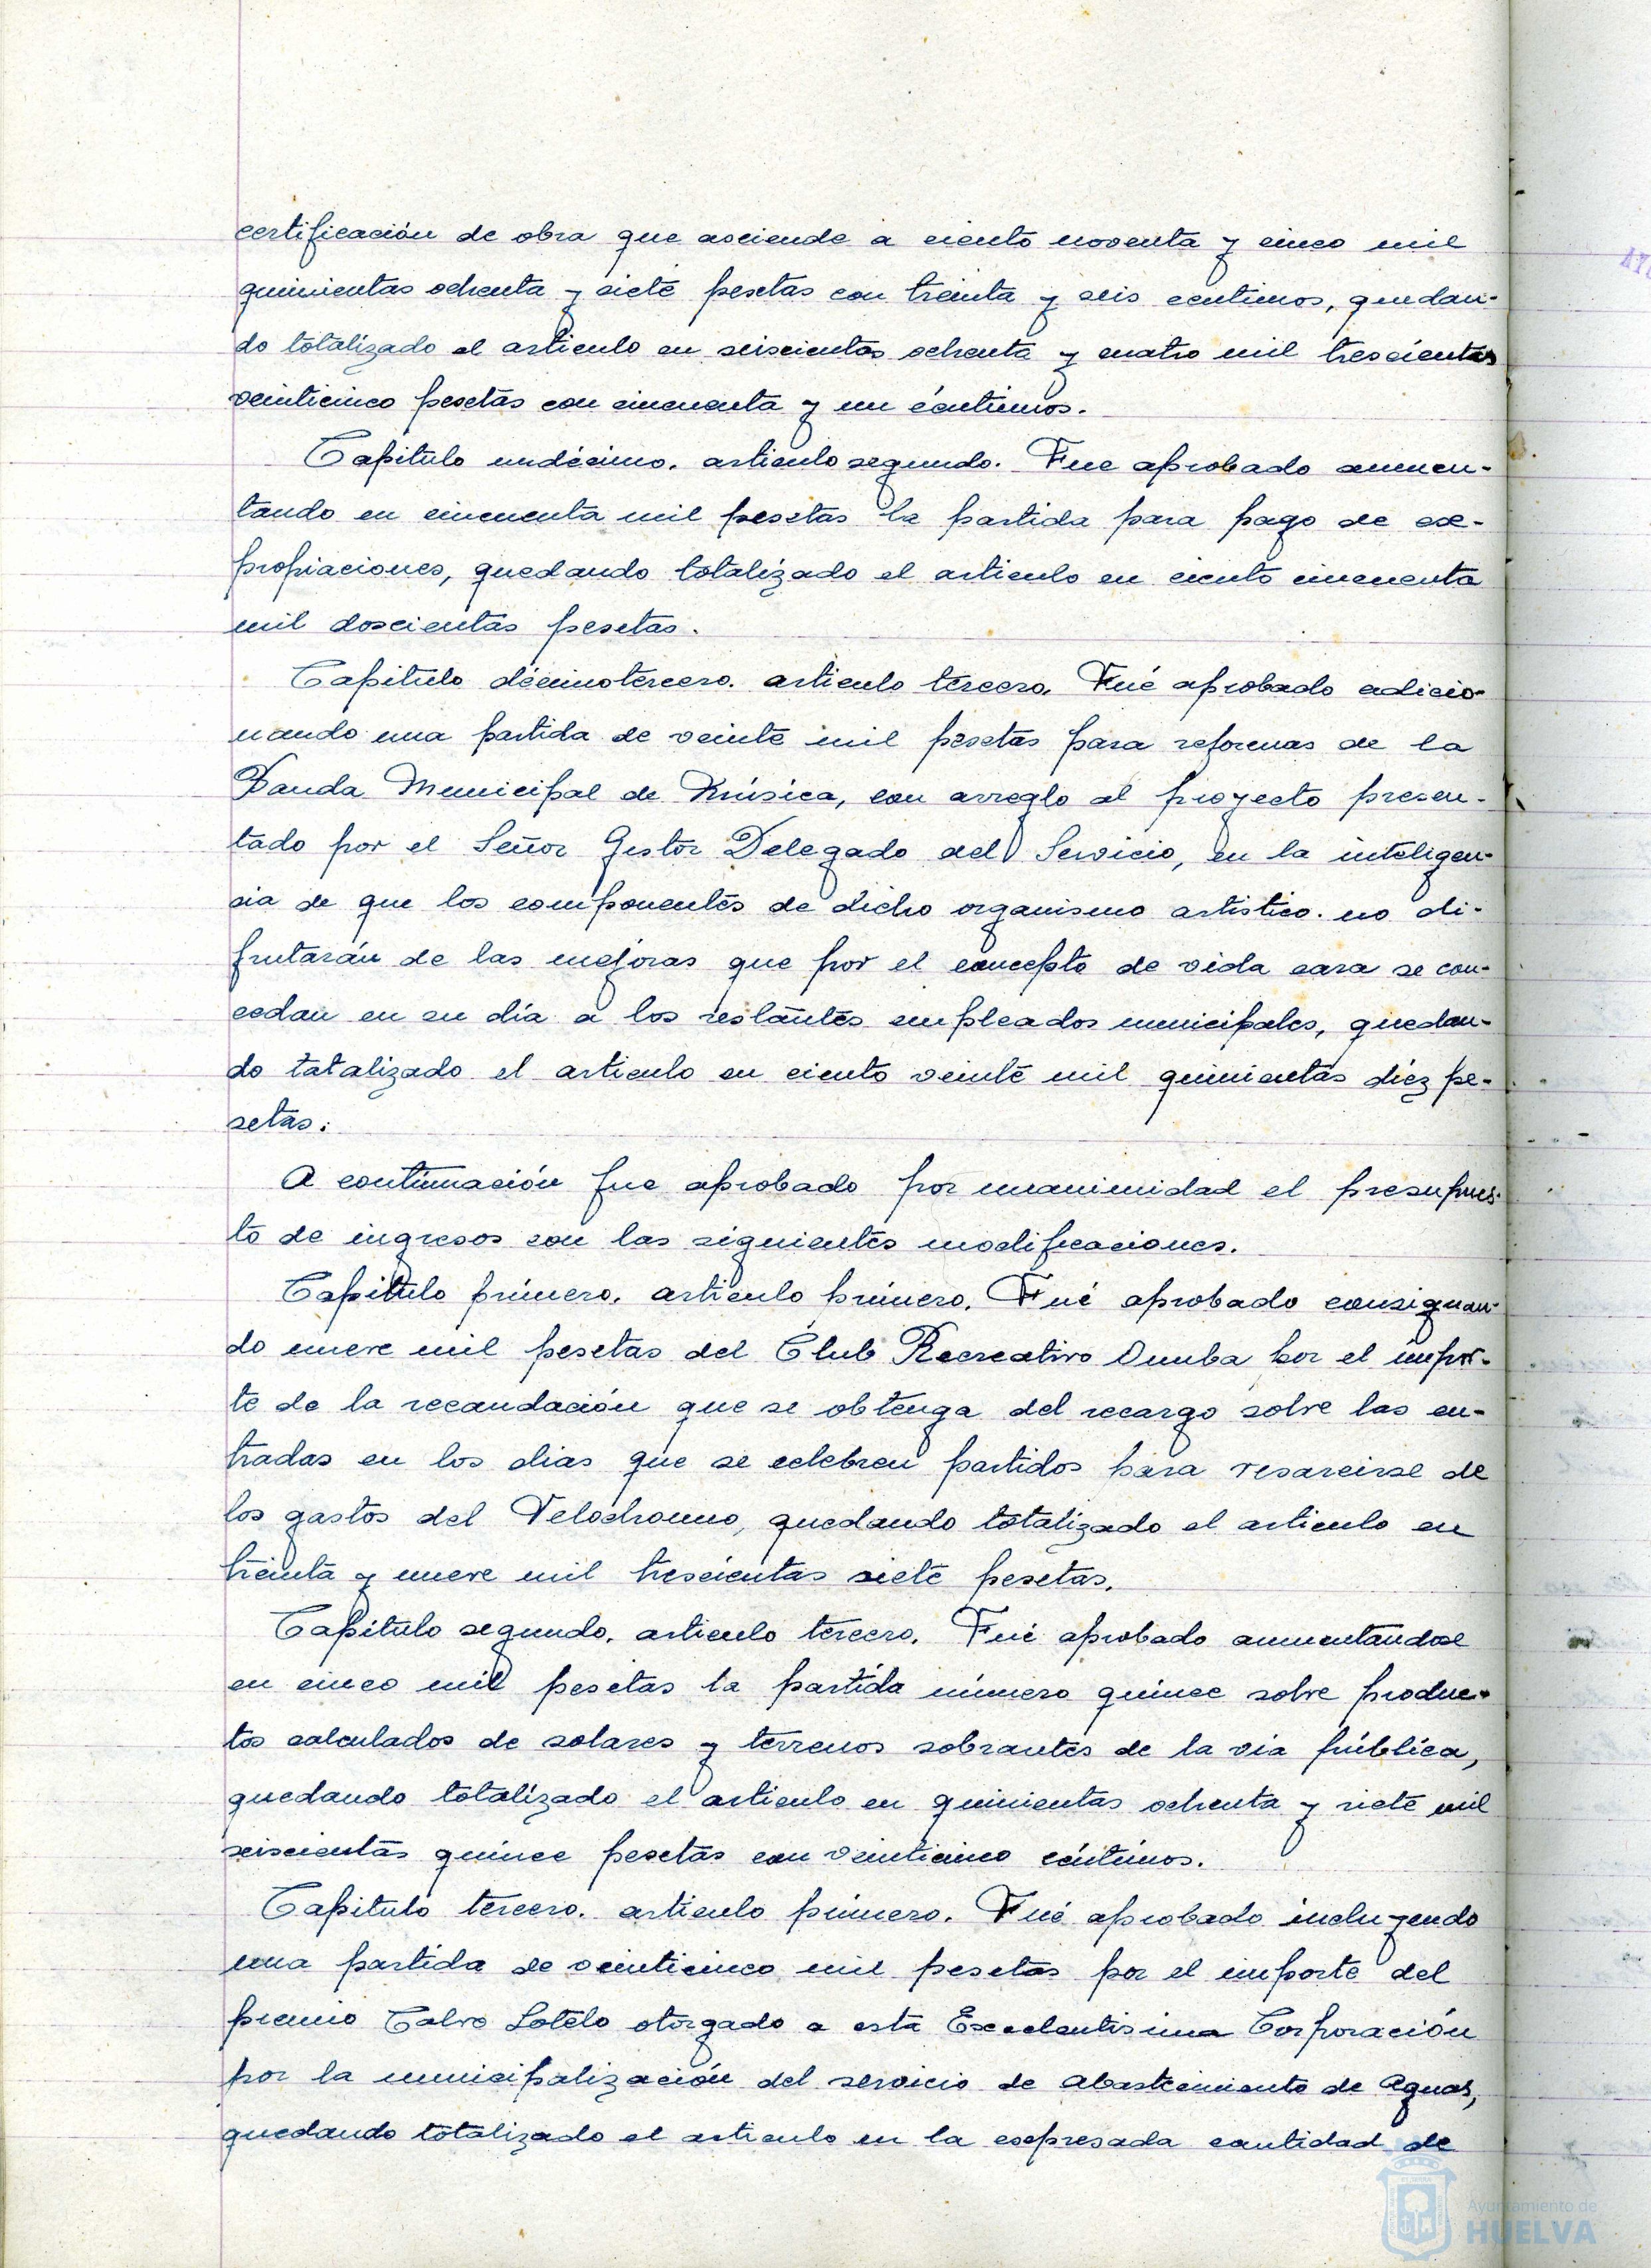 certificación de obra que asciende a ciento noventa y cinco mil
quinientas ochenta y siete pesetas con treinta y seis centimos, quedan-
do totalizado el articulo en seiscientas ochenta y cuatro mil trescientas
veinticinco pesetas con cincuenta y un céntimos.
Capitulo undécimo. articulo segundo. Fue aprobado aumen-
tando en cincuenta mil pesetas la partida para pago de ex-
propiaciones, quedando totalizado el articulo en ciento cincuenta
mil doscientas pesetas.
Capitulo décimotercero. articulo tercero. Fué aprobado adicio-
nando una partida de veinte mil pesetas para reformas de la
Banda Municipal de Música, con arreglo al proyecto presen-
tado por el Señor Gestor Delegado del Servicio, en la inteligen-
cia de que los componentes de dicho organismo artistico no di-
frutarán de las mejoras que por el concepto de vida cara se con-
cedan en su día a los restantes empleados municipales, quedan-
do totalizado el articulo en ciento veinte mil quinientas diéz pe-
setas.
A continuación fue aprobado por unanimidad el presupues-
to de ingresos con las siguientes modificaciones.
Capitulo primero. articulo primero. Fué aprobado consignan-
do nueve mil pesetas del Club Recreativo Onuba por el impor-
te de la recaudación que se obtenga del recargo sobre las en-
tradas en los dias que se celebren partidos para resarcirse de
los gastos del Velodromo, quedando totalizado el articulo en
treinta y nueve mil trescientas siete pesetas.
Capitulo segundo. articulo tercero. Fué aprobado aumentandose
en cinco mil pesetas la partida número quince sobre produc-
tos calculados de solares y terrenos sobrantes de la via pública,
quedando totalizado el articulo en quinientas ochenta y siete mil
seiscientas quince pesetas con veinticinco céntimos.
Capitulo tercero. articulo primero. Fué aprobado incluyendo
una partida de veinticinco mil pesetas por el importe del
premio Calvo Sotelo otorgado a esta Excelentisima Corporación
por la municipalización del servicio de abastecimiento de Aguas,
quedando totalizado el articulo en la expresada cantidad de
Ayuntamiento de
HUELVA